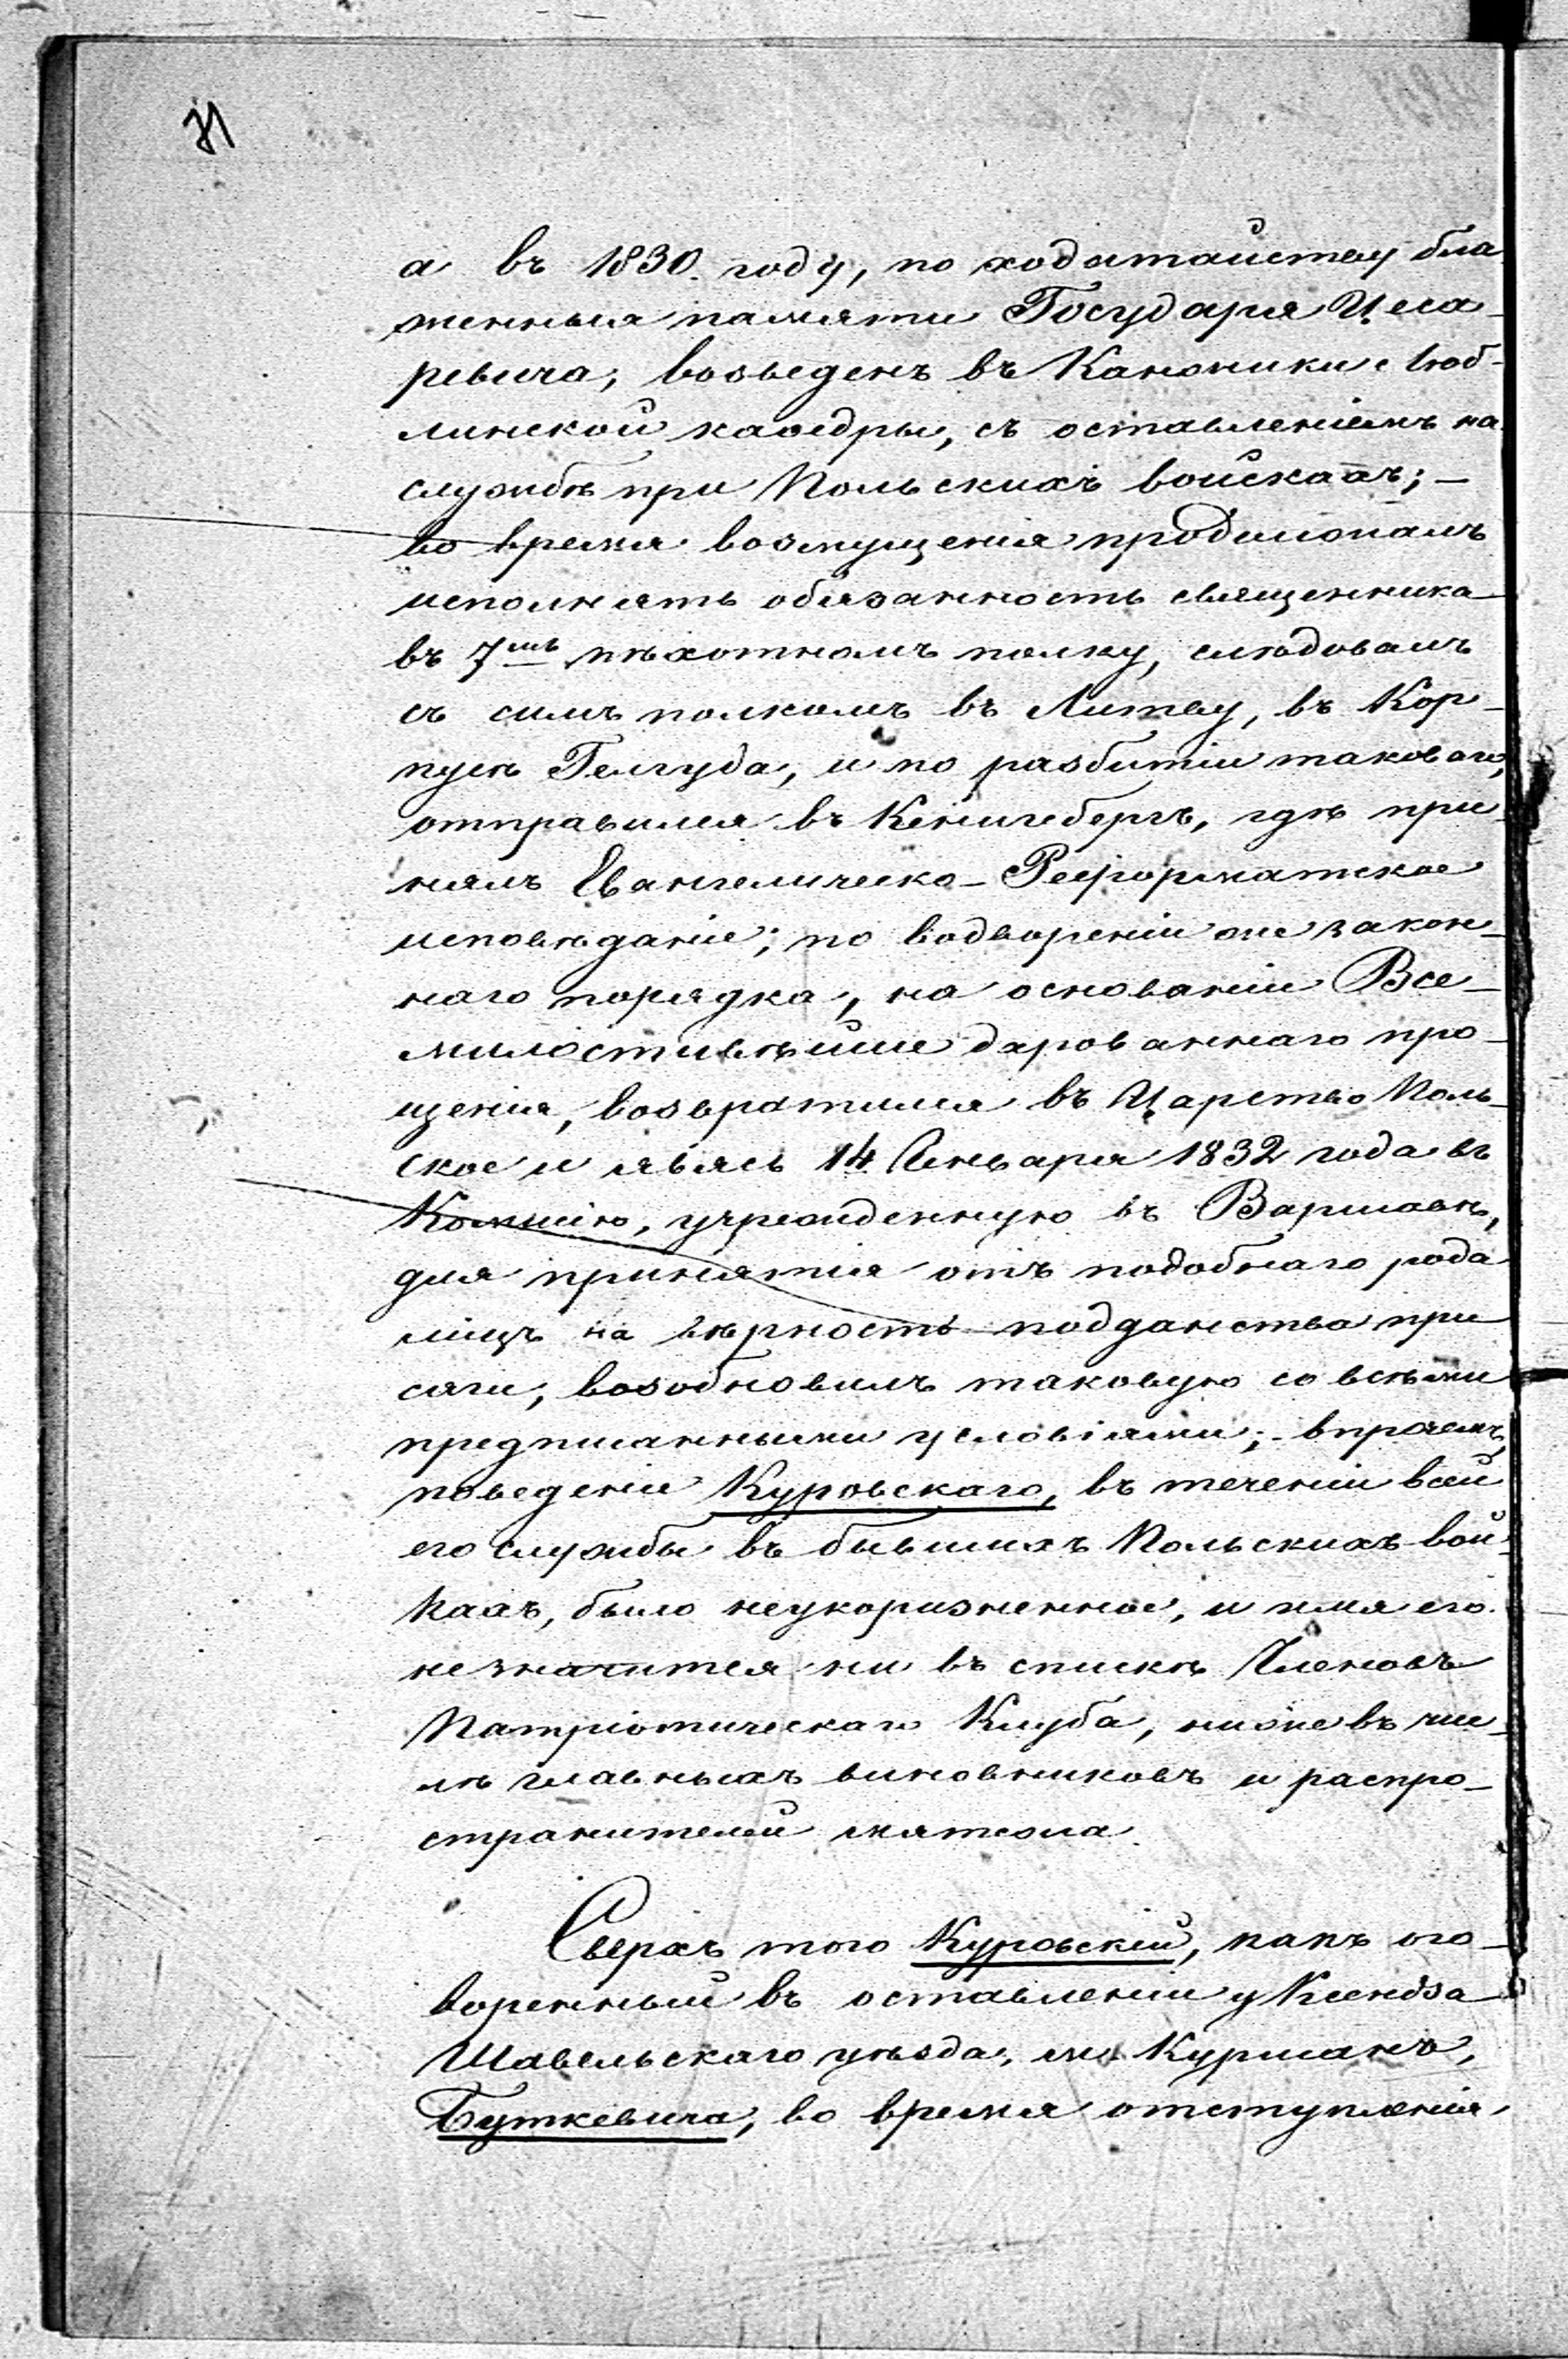 а въ 1830. году, по ходатайству бла
женныя памяти Государя Цеса-
ревича, возведенъ въ Каноники Люб-
линской каѳедры, съ оставленіемъ на
службѣ при Польскихъ войскахъ; -
во время возмущенія продолжалъ
исполнять обязанность священника
въ 7мъ пѣхотномъ полку, слѣдовалъ
съ симъ полкомъ въ Литву, въ Кор-
пусѣ Гелгуда, и по разбитіи таковаго,
отправился въ Кенигсбергъ, гдѣ при-
нялъ Евангелическо-Реформатское
исповѣданіе; по водвореніи же закон-
наго порядка, на основаніи Все-
милостивѣйше дарованнаго про-
щенія, возвратился въ Царство Поль-
ское и явясь 14 Января 1832 года въ
Комисію, учрежденную въ Варшавѣ,
для принятія отъ подобнаго рода
лицъ на вѣрность подданства при
сяги, возобновилъ таковую со всѣми
предписанными условіями; - впрочемъ,
поведеніе Куровскаго, въ теченіи всей
его службы въ бывшихъ Польскихъ вой-
кахъ, было неукоризненное, и имя его
незначится ни въ спискѣ Членовъ
Патріотическаго Клуба, ниже въ чис-
лѣ главныхъ виновниковъ и распро-
странителей мятежа.
Сверхъ того Куровскій, какъ ого-
воренный въ оставленіи у Ксендза
Шавельскаго уѣзда, м. Куршанъ,
Буткевича, во время отступленія,